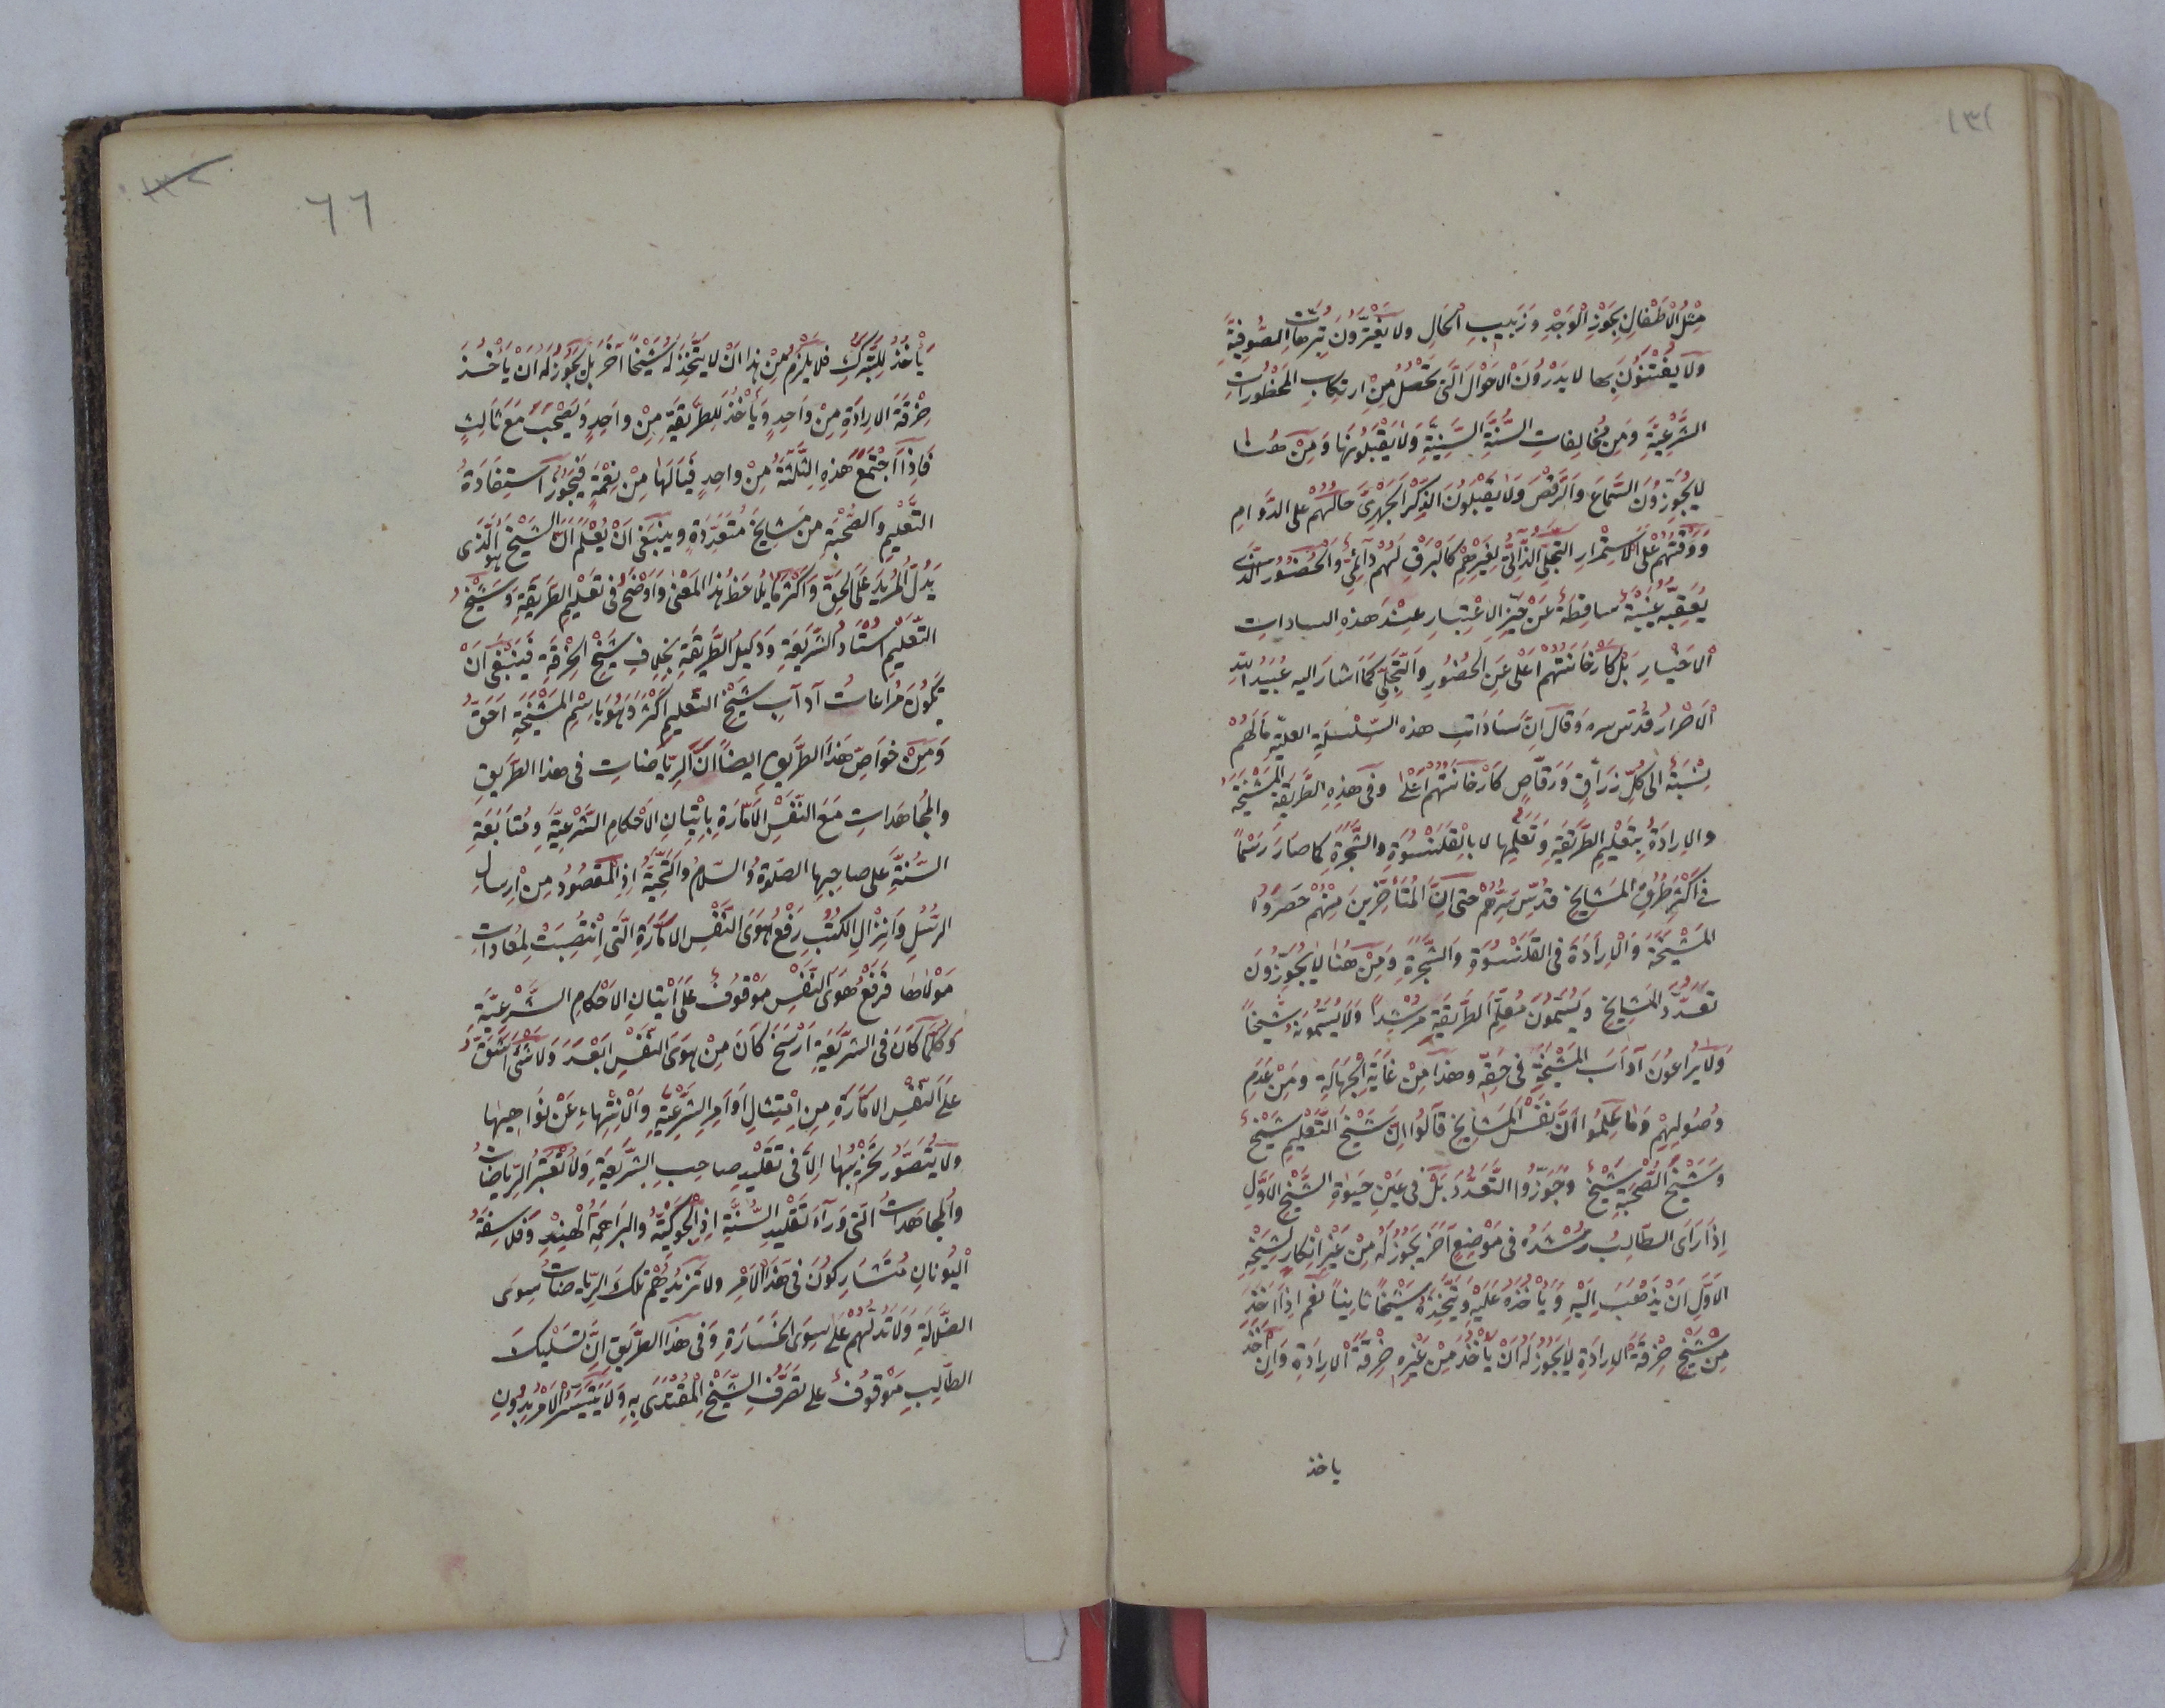 ١٣١
مِثْلُ الْاَطْفَالِ بِجَوْزِ الْوَجْدِ وَزَبِيبِ الْحَالِ وَلَا يَغْتَرُّونَ بِتُرَّهَاتِ الصُّوفِيَّةِ
وَلَا يَفْتَتِنُونَ بِهَا لَا يَدْرُونَ الْاَحْوَالَ الَّتِى تَحْصُلُ مِنْ ارْتِكَابِ الْمَحْظُورَاتِ
الشَّرْعِيَّةِ وَمِنْ مُخَالِفَاتِ السُّنَّةِ السَّنِيَّةِ وَلَا يَقْبَلُونَهَا وَمِنْ هُنَا
لَا يُجَوِّزُونَ السَّمَاعَ وَالرَّقْصَ وَلَا يَقْبَلُونَ الذِّكْرَ الْجَهْرِيَّ حَالُهُمْ عَلَى الدَّوَامِ
وَوَقْتُهُمْ عَلَى الْاِسْتِمْرَارِ التَّجَلِّى الذَّاتِيُّ لِغَيْرِهِمْ كَالْبَرْقِ لَهُمْ دَائِمِيٌّ وَالْحُضُورُ الَّذِى
يُعَقِّبُهُ غَيْبَةٌ سَاقِطَةٌ عَنْ حَيِّزِ الْاِعْتِبَارِ عِنْدَ هذِهِ السادات
الْاَخْيَارِ بَلْ كَارْخَانَتُهُمْ اَعْلَى عَنِ الْحُضُورِ وَالتَّجَلِّى كَمَا اَشَارَ اليه عُبَيْدُ اللّٰهِ
الْاَحْرَارُ قُدِّسَ سره وَقَالَ اِنَّ سَادَاتِ هذه السِّلْسِلَةِ العليّة مَا لَهُمْ
نِسْبَةٌ الى كُلِّ زَرَّاقٍ وَرَقَّاصٍ كَارْخَانَتُهُمْ اَعْلَى وَفى هذِهِ الطَّرِيقَةِ الْمَشْيَخَةُ
وَالْاِرَادَةُ بِتَعْلِيمِ الطَّرِيقَةِ وَتَعَلُّمِهَا لَا بِالْقَلَنْسُوَةِ وَالشَّجَرَةِ كَمَا صَارَ رَسْمًا
فى اَكْثَرِ طُرُقِ الْمَشَايِخِ قُدِّسَ سِرُّهُمْ حَتى اِنَّ الْمُتَأَخِّرِينَ مِنْهُمْ حَصَرُوا
الْمَشْيَخَةَ وَالْاِرَادَةَ فى الْقَلَنْسُوَةِ وَالشَّجَرَةِ وَمِنْ هُنَا لَا يُجَوِّزُونَ
تَعَدُّدَ الْمَشَايِخِ وَيُسَمُّونَ مُعَلِّمَ الطَّرِيقَةِ مُرْشِدًا وَلَا يُسَمُّونَهُ شَيْخًا
وَلَا يُرَاعُونَ آدَابَ الْمَشْيَخَةِ فى حَقِّهِ وَهذَا مِنْ غَايَةِ الْجَهَالَةِ وَمِنْ عَدَمِ
وُصُولِهِمْ وَمَا عَلِمُوا اَنَّ نَفْسَ الْمَشَايِخِ قَالُوا اِنَّ شَيْخَ التَّعْلِيمِ شَيْخٌ
وَشَيْخَ الصُّحْبَةِ شَيْخٌ وَجَوَّزُوا التَّعَدُّدَ بَلْ فى عَيْنِ حَيٰوةِ الشَّيْخِ الْاَوَّلِ
اِذَا رَاَى الطَّالِبُ رُشْدَهُ فى مَوْضِعٍ آخَرَ يَجُوزُ لَهُ مِنْ غَيْرِ اِنْكَارِ شَيْخِهِ
الْاَوَّلِ اَنْ يَذْهَبَ اِلَيْهِ وَيَتَّخِذَهُ شَيْخًا ثَانِيًا نَعَمْ اِذَا اَخَذَ
مِنْ شَيْخٍ خِرْقَةَ الْاِرَادَةِ لَا يَجُوزُ لَهُ اَنْ يَأْخُذَ مِنْ غَيْرِهِ خِرْقَةَ الْاِرَادَةِ وَاِنْ اَخَذَ
ياخذ
٦٦
يَأْخُذُ لِلتَّبَرُّكِ فَلَا يَلْزَمُ مِنْ هذَا اَنْ لَا يَتَّخِذَ لَهُ شَيْخًا آخَرَ بَلْ يَجُوزُ لَهُ اَنْ يَأْخُذَ
خِرْقَةَ الْاِرَادَةِ مِنْ وَاحِدٍ وَيَأْخُذَ الطَّرِيقَةِ مِنْ وَاحِدٍ وَيَصْحَبَ مَعَ ثَالِثٍ
فَاِذَا اجْتَمَعَ هَذِهِ الثَّلٰثَةُ مِنْ وَاحِدٍ فَيَالَهَا مِنْ نِعْمَةٍ فَيَجُوزُ اسْتِفَادَةُ
التَّعْلِيمِ وَالصُّحْبَةِ مِنْ مَشَايِخَ مُتَعَدِّدَةٍ وَيَنْبَغِى اَنْ يُعْلَمَ اَنَّ الشَّيْخَ هُوَ الَّذِى
يَدُلُّ الْمُرِيدَ عَلَى الْحَقِّ وَاَكْثَرُ مَا يُلَاحَظُ هذَا الْمَعْنَى وَاَوْضَحُ فى تَعْلِيمِ الطَّرِيقَةِ وَشَيْخُ
التَّعْلِيمِ اُسْتَادُ الشَّرِيعَةِ وَدَلِيلُ الطَّرِيقَةِ بِخِلَافِ شَيْخِ الْخِرْقَةِ فَيَنْبَغِى اَنْ
تَكُونَ مُرَاعَاتُ آدَابِ شَيْخِ التَّعْلِيمِ اَكْثَرَ وَهُوَ بِاسْمِ الْمَشْيَخَةِ اَحَقُّ
وَمِنْ خَوَاصِّ هَذَا الطَّرِيقِ اَيْضًا اَنَّ الرِّيَاضَاتِ فى هذا الطَّرِيقِ
وَالْمُجَاهَدَاتِ مَعَ النَّفْسِ الْاَمَّارَةِ بِاِتْيَانِ الْاَحْكَامِ الشَّرْعِيَّةِ وَمُتَابَعَةِ
السُّنَّةِ عَلَى صَاحِبِهَا الصَّلٰوةُ وَالسَّلَامُ وَالتَّحِيَّةُ اِذِ الْمَقْصُودُ مِنْ اِرْسَالِ
الرُّسُلِ وَاِنْزَالِ الْكُتُبِ رَفْعُ هَوَى النَّفْسِ الْاَمَّارَةِ الَّتِى انْتَصَبَتْ لِمُعَادَاتِ
مَوْلَاهَا فَرَفْعُ هَوَى النَّفْسِ مَوْقُوفٌ عَلَى اِتْيَانِ الْاَحْكَامِ الشَّرْعِيَّةِ
وَكُلَّمَا كَانَ فى الشَّرِيعَةِ اَرْسَخَ كَانَ مِنْ هَوَى النَّفْسِ اَبْعَدَ وَلَا شَىْءَ اَشَقُّ
عَلَى النَّفْسِ الْاَمَّارَةِ مِنِ امْتِثَالِ اَوَامِرِ الشَّرْعِيَّةِ وَالْاِنْتِهَاءِ عَنْ نَوَاهِيهَا
وَلَا يُتَصَوَّرُ تَخْرِيبُهَا اِلَّا فى تَقْلِيدِ صَاحِبِ الشَّرِيعَةِ وَلَا تُعْتَبَرُ الرِّيَاضَاتُ
وَالْمُجَاهَدَاتُ الَّتِى وَرَاءَ تَقْلِيدِ السُّنَّةِ اِذِ الْجُوكِيَّةُ وَالْبَرَاهِمَةُ الْهِنْدِ وَفَلَاسِفَةُ
الْيُونَانِ مُتَشَارِكُونَ فى هَذَا الْاَمْرِ وَلَا تَزِيدُهُمْ تِلْكَ الرِّيَاضَاتُ سِوَى
الضَّلَالَةِ وَلَا تَدُلُّهُمْ عَلَى سِوَى الْخَسَارَةِ وَفى هذَا الطَّرِيقِ اِنَّ تَسْلِيكَ
الطَّالِبِ مَوْقُوفٌ عَلَى تَصَرُّفِ الشَّيْخِ الْمُقْتَدَى بِهِ وَلَا يَتَيَسَّرُ الْاَمْرُ بِدُونِ